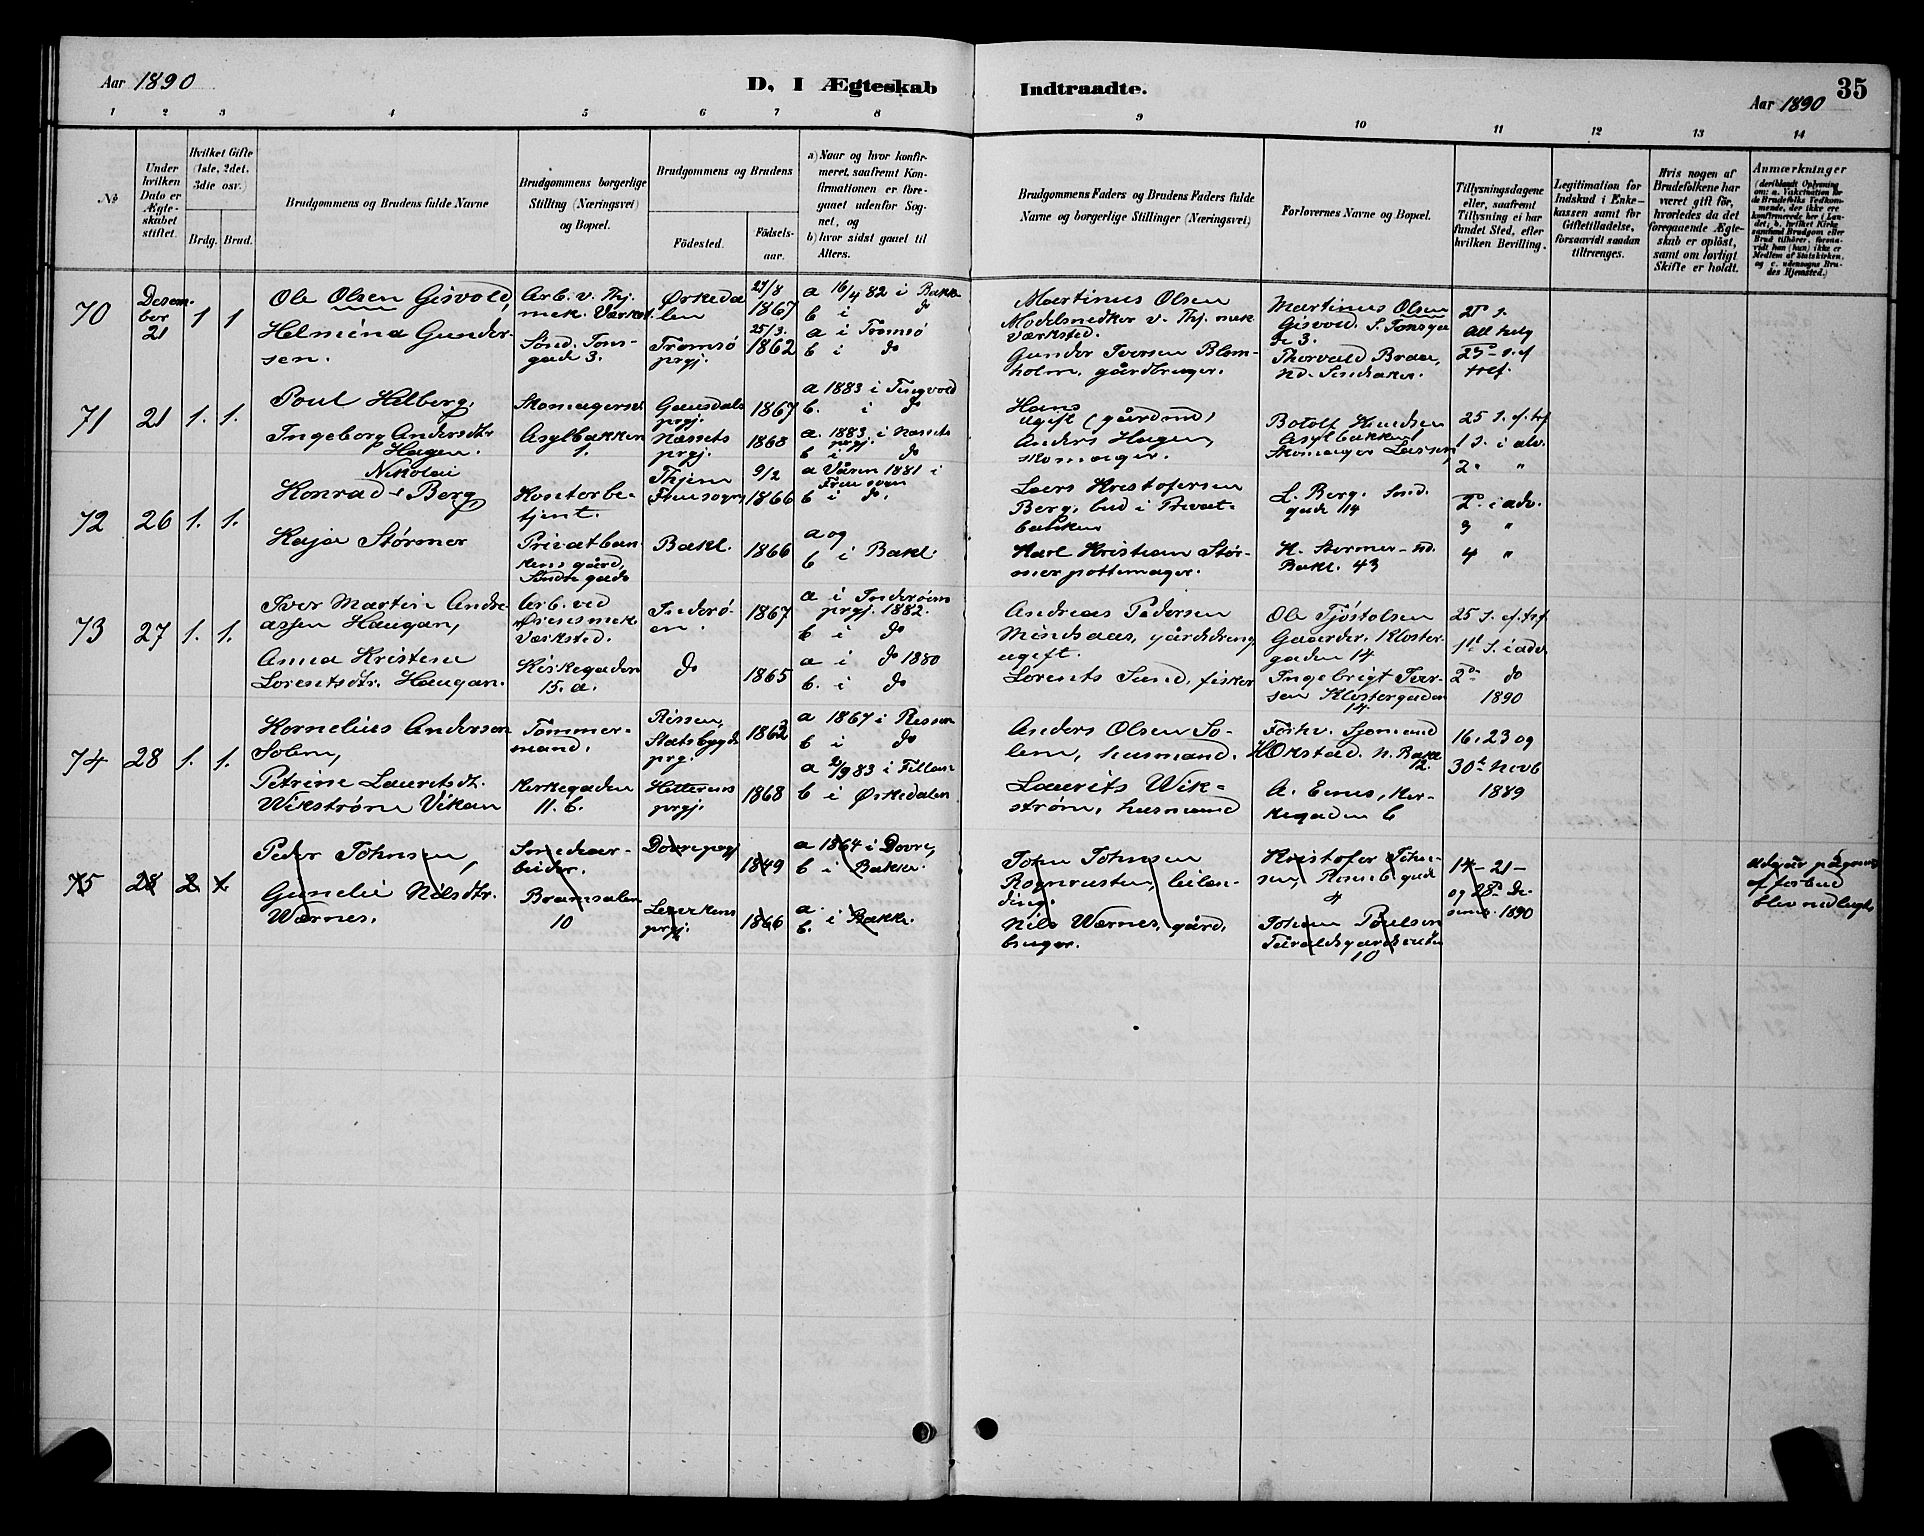 Aar 1890
D, I Ægteskab
Indtraadte.
35
Aar 1890
1 2 3 4 5 6 7 8 9 10 11 12 13 14
№
Under hvilken Dato er Ægteskabet stiftet.
Hvilket Gifte (1ste, 2det, 3die osv.)
Brdg. Brud.
Brudgommens og Brudens fulde Navne
Brudgommens borgerlige Stilling (Næringsvei) og Bopæl.
Brudgommens og Brudens
Fødested.
Fødsels-aar.
a) Naar og hvor konfirmeret, saafremt Konfirmationen er foregaaet udenfor Sognet, og
b) hvor sidst gaaet til Alters.
Brudgommens Faders og Brudens Faders fulde Navne og borgerlige Stillinger (Næringsvei)
Forlovernes Navne og Bopæl.
Tillysningsdagene eller, saafremt Tillysning ei har fundet Sted, efter hvilken Bevilling.
Legitimation for Indskud i Enkekassen samt for Giftetilladelse, forsaavidt saadan tiltrænges.
Hvis nogen af Brudefolkene har været gift før, hvorledes da det foregaaende Ægteskab er opløst, samt om lovligt Skifte er holdt.
Anmærkninger
(deriblandt Oplysning om: a. Vakcination for de Brudefolks Vedkommende, der ikke ere konfirmerede her i Landet; b. hvilket Kirkesamfund Brudgom eller Brud tilhører, forsaavidt han (hun) ikke er Medlem af Statskirken, og c. udensogns Brudes Hjemsted.)
70
Desember
21
1 1
Ole Olsen Gisvold,
Helmina Gundersen.
Arb. v. Thj. mek. Værkst.
Sønd. Tonsgade 3.
Ørkedalen
Tromsø prgj.
27/8 1867
25/3. 1862
a 16/4 82 i Bakke
b i do
a i Tromsø
b i do
Martinus Olsen
Modelsnedker v. Thj. mek
Værksted.
Gunder Iversen Blomholm, gårdbruger.
Martinus Olsen
Gisvold. S. Tonsgade 3.
Thorvald Braa,
25 s. ef. tref
71
21
1. 1.
Poul Helberg,
Ingeborg Andersdtr Hagen.
Asylbakken 1.
Gausdals prgj.
Næssets prgj.
1867
1868
a 1883 i Tingvold
b. i do
a. 1883 i Næssets prgj.
b i do
Hans
ugift (gårdmd)
Anders Hagen,
skomager.
Botolf Knudsen
Asylbakken 1
Skomager Larsen,
25 s. ef. tref
1 s. i adv.
2 " "
72
26
1. 1.
Nikolai
Konrad Berg,
Kaja Størmer
Kontorbetjent.
Privatbankens gård,
Søndre gade
Thjem
Fruesogn
Bakl.
9/2 1866
1866
a Våren 1881 i Frue sogn
b i do.
a og
b i Bakl.
Lars Kristofersen
Berg, bud i Privatbanken
Karl Kristian Størmer pottemager.
L. Berg. Sønd. gade 14
K. Størmer – nd. Bakl. 43
2. i adv.
3 "
4 "
73
27
1. 1.
Iver Martin Andreassen Haugan,
Anna Kristine
Lorentsdtr. Haugan.
Arb. ved
Ørens mek.
Værksted.
Kirkegaden
15. a.
Inderøen.
do
1867
1865
a i Inderøens prgj. 1882.
b i do
a i do 1880
b. i do
Andreas Pedersen
Mindsaas, gårddreng
ugift.
Lorents Sund, fisker
Ole Tjøstolsen
Gaarder, Klostergaden 14
Ingebrigt Iversen Klostergaden 14
25 s. ef. tref
1s s. i adv.
2 do
1890
74
28
1. 1.
Kornelius Andersen
Solem,
Petrine Lauritsdt.
Wikstrøm Vikan
Tømmermand.
Kirkegaden
11. b.
Rissen,
Statsbygds prg.
Hitterens prgj.
1862
1868
a 1867 i Rissen
b i do
a 2/9 83 i Fillan
b i Ørkedalen
Anders Olsen Solem, husmand.
Laurits Wikstrøm, husmand
Forhv. Sjømand
H Okstad. N. Bakl 12.
A. Enus, Kirkegaden 6
16. 23 og
30t Novb
1889
75
28
2 1
Peder Johnsen,
Gunelie Nilsdtr.
Wærnes.
Smedearbeider.
Bromsalen
10
Dovre prgj
Lexvikens prgj.
1849
1866
a 1864 i Dovre,
b i Bakke.
a.
b. i Bakke.
John Johnsen
Rognrusten, leilending.
Nils Wærnes, gårdbruger.
Kristofer Johnsen, Rosenb. gade 4
Johan Poulsen
10
14 – 21 –
og 28d Desemb. 1890
Udgår på grund af forbud
blev nedlagt